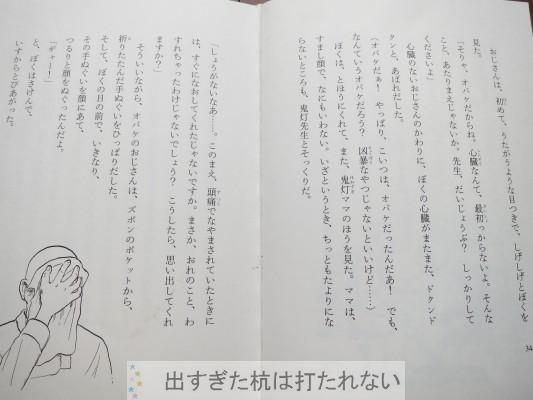 おじさんは、初めて、うたがうような目つきで、しげしげとぼくを
見た。
「そりゃ、オバケだからね。心臓なんて、最初っからないよ。そんな
こと、あたりまえじゃないか。先生、だいじょうぶ？　しっかりして
くださいよ」
心臓のないおじさんのかわりに、ぼくの心臓がまたまた、ドクンド
クンと、あばれだした。
（オバケだぁ！　やっぱり、こいつは、オバケだったんだあ！　でも、
なんていうオバケだろう？　凶暴なやつじゃないといいけど……）
ぼくは、とほうにくれて、また、鬼灯ママのほうを見た。ママは、
すまし顔で、なにもいわない。いざというとき、ちっともたよりにな
らないところも、鬼灯先生とそっくりだ。
34
「しょうがないなあ……。このまえ、頭痛でなやまされていたときに
は、すぐになおしてくれたじゃないですか。まさか、おれのこと、わ
すれちゃったわけじゃないでしょう？　こうしたら、思い出してくれ
ますか？」
そういいながら、オバケのおじさんは、ズボンのポケットから、
折りたたんだ手ぬぐいをひっぱりだした。
そして、ぼくの目の前で、いきなり、
その手ぬぐいを顔にあて、
つるりと顔をぬぐったんだよ。
「ギャー！」
と、ぼくはさけんで、
いすからとびあがった。
出すぎた杭は打たれない